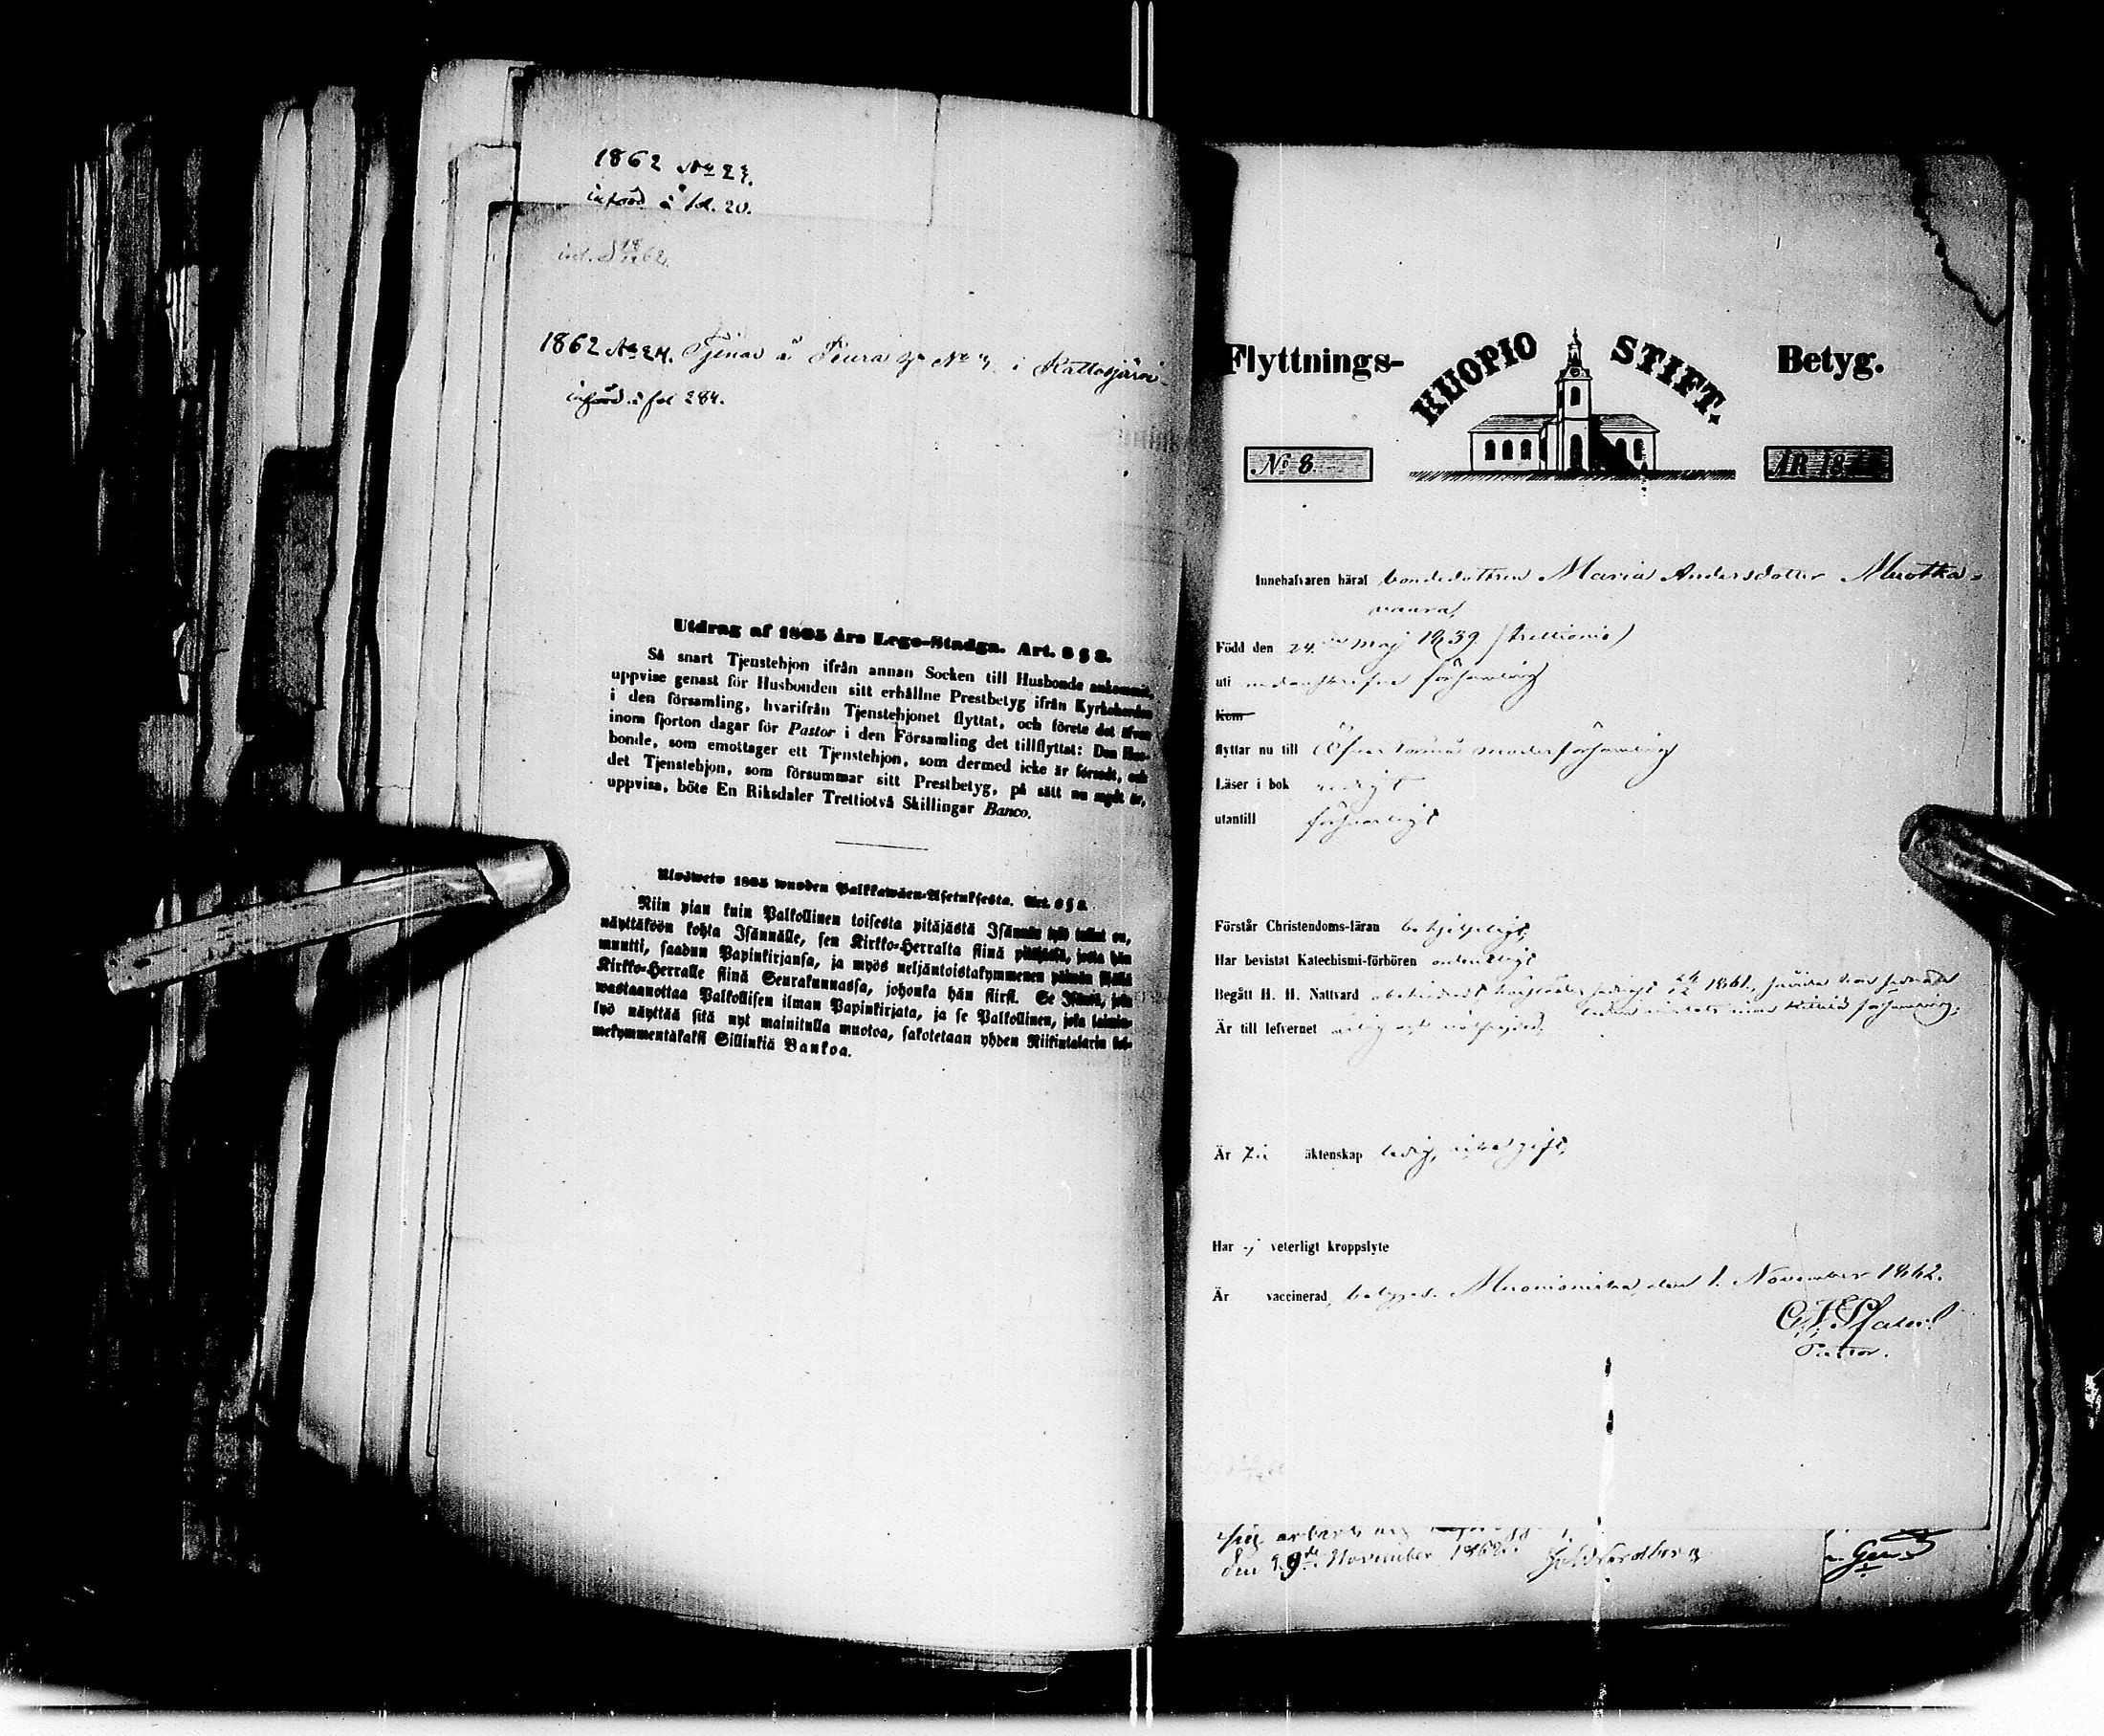 1862 No 23.
införd å fol. 20.
1862 No 24. Tjenar å Peura No 3 i Rattosjärvi
införd å fol 284.
Utdrag af 1805 års Lego-Stadga. Art. 6 § 8.
Så snart Tjenstehjon ifrån annan Socken till Husbonde ankommit,
uppvise genast för Husbonden sitt erhållne Prestbetyg ifrån Kyrkoherden
i den församling, hvarifrån Tjenstehjonet flyttat, och förete det äfven
inom fjorton dagar för Pastor i den Församling det tillflyttat: Den Hus-
bonde, som emottager ett Tjenstehjon, som dermed icke är försedt, och
det Tjenstehjon, som försummar sitt Prestbetyg, på sätt nu sagdt är,
uppvisa, böte En Riksdaler Trettiotvå Skillingar Banco.
Ulosweto 1805 wuoden Palkkawäen-Asetuksesta. Art. 6 § 8.
Niin pian kuin Palkollinen toisesta pitäjästä Isännän työ tullut on,
näyttäköön kohta Isännälle, sen Kirkko-Herralta siinä pitäjästä, josta hän
muutti, saadun Papinkirjansa, ja myös neljäntoistakymmenen päiwän sisällä
Kirkko-Herralle siinä Seurakunnassa, johonka hän siirsi. Se Isäntä, jota
wastaanottaa Palkollisen ilman Papinkirjata, ja se Palkollinen, jota laimin-
lyö näyttää sitä nyt mainitulla muotoa, sakotetaan yhden Riikintalarin kol-
mekymmentäkaksi Sillinkiä Bankoa.
Flyttnings- KUOPIO STIFT. Betyg.
No 8. ÅR 18
Innehafvaren häraf bondedottren Maria Andersdotter Muotka-
vaara,
Född den 24. Maj 1839 (trettionio)
uti nedanskrifne församling
Kom
flyttar nu till Öfver Torneå moderförsamling
Läser i bok redigt
utantill försvarligt
Förstår Christendoms-läran behjelpligt,
Har bevistat Katechismi-förhören ordentligt
Begått H. H. Nattvard obehindradt 1861,
Kittilä församling,
Är till lefvernet
Är till äktenskap ledig, icke gift,
Har ej veterligt kroppslyte
Är vaccinerad, betygas. Muonioniska, den 1. November 1862.
Pastor.
den November 1862. Nordberg